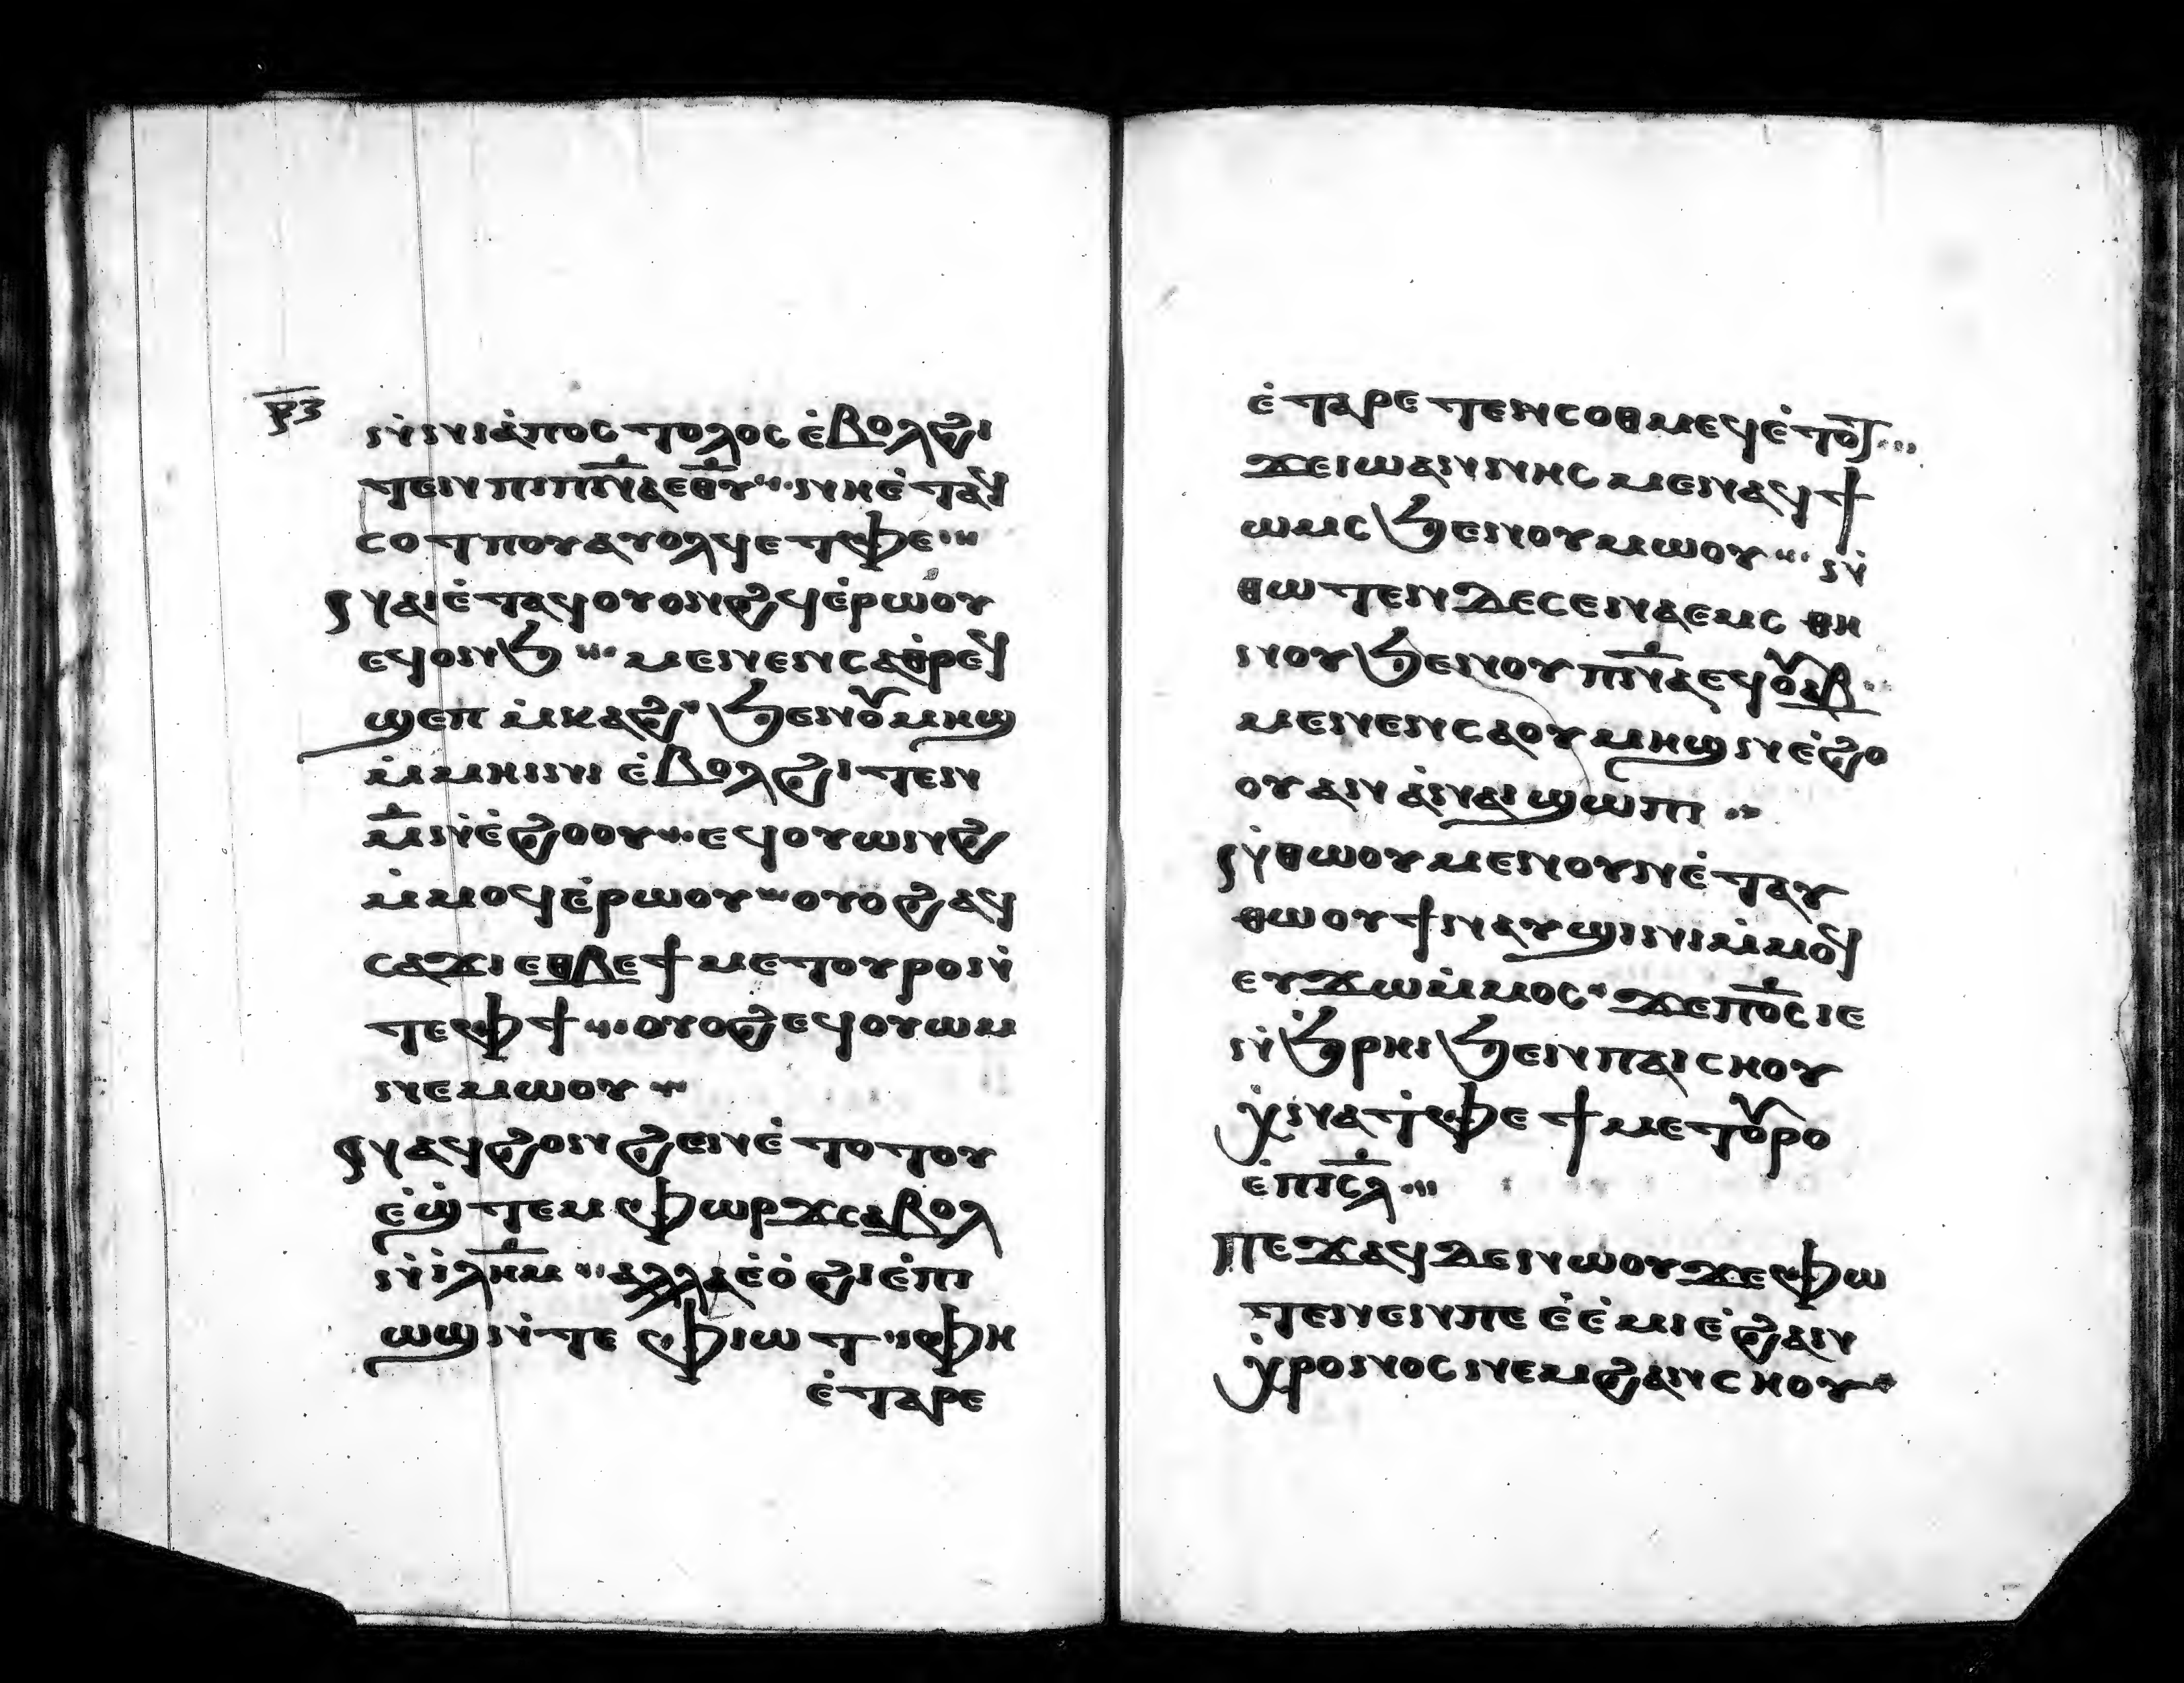 ⲣ̅ⲍ̅
ⲛ̀ⲛⲓⲁ̀ⲡⲟⲥⲧⲟⲗⲟⲥ ⲉ̀ⲃⲟⲗϩⲓ
ⲧⲉⲛ ⲡⲓⲡ̅ⲛ̅ⲁ̅ ⲉ̅ⲑ̅ⲩ̅ ⲛⲏ ⲉ̀ⲧⲁϥ
ⲥⲟⲧⲡⲟⲩ ⲁⲩⲟⲗϥ ⲉⲧⲫⲉ
ⲛⲁⲓ ⲉ̀ⲧⲁϥⲟⲩⲟⲛϩϥ ⲉ̀ⲣⲱⲟⲩ
ⲉϥⲟⲛϧ ⲙⲉⲛⲉⲛⲥⲁⲑⲣⲉϥ
ϣⲉⲡ ⲙ̀ⲕⲁϩ ϧⲉⲛⲟⲩⲙⲏϣ
ⲙ̀ⲙⲏⲓⲛⲓ ⲉ̀ⲃⲟⲗϩⲓⲧⲉⲛ
ⲙ̅ ⲛ̀ⲉ̀ϩⲟⲟⲩ ⲉϥⲟⲩⲱⲛϩ
ⲙ̀ⲙⲟϥ ⲉ̀ⲣⲱⲟⲩ ⲟⲩⲟϩ ⲁϥ
ⲥⲁϫⲓ ⲉⲑⲃⲉ ϯⲙⲉⲧⲟⲩⲣⲟ ⲛ̀
ⲧⲉⲫϯ ⲟⲩⲟϩ ⲉϥⲟⲩⲱⲙ
ⲛⲉⲙⲱⲟⲩ
ⲛⲁϥϩⲟⲛϩⲉⲛ ⲉ̀ⲧⲟⲧⲟⲩ
ⲉ̀ϣ̀ⲧⲉⲙⲫⲱⲣϫ ⲥⲁⲃⲟⲗ
ⲛ̀ⲓ̀ⲗ̅ⲏ̅ⲙ̅ ⲁⲗⲗⲁ ⲉ̀ⲟ̀ϩⲓ ⲉ̀ⲡⲓ
ⲱϣ ⲛ̀ⲧⲉ ⲫⲓⲱⲧ ⲫⲏ
ⲉ̀ⲧⲁⲣⲉ
ⲉ̀ⲧⲁⲣⲉⲧⲉⲛⲥⲟⲑⲙⲉϥ ⲉ̀ⲧⲟⲧ
ϫⲉ ⲓⲱⲁⲛⲛⲏⲥ ⲙⲉⲛ ⲁϥϯ
ⲱⲙⲥ ϧⲉⲛⲟⲩⲙⲱⲟⲩ ⲛ̀
ⲑⲱⲧⲉⲛ ⲇⲉ ⲥⲉⲛⲁⲉⲙⲥ ⲑⲏ
ⲛⲟⲩ ϧⲉⲛⲟⲩⲡ̅ⲛ̅ⲁ̅ ⲉϥⲟⲩⲁⲃ
ⲙⲉⲛⲉⲛⲥⲁ ⲟⲩⲙⲏϣ ⲛ̀ⲉ̀ϩⲟ
ⲟⲩ ⲁⲛ ⲁ̀ⲛⲁⲓ ϣⲱⲡⲓ
ⲛ̀ⲑⲱⲟⲩ ⲙⲉⲛ ⲟⲩⲛ ⲉ̀ⲧⲁⲩ
ⲑⲱⲟⲩϯ ⲛⲁⲩϣⲓⲛⲓ ⲙ̀ⲙⲟϥ
ⲉⲩϫⲱ ⲙ̀ⲙⲟⲥ ϫⲉ ⲡ̅ⲟ̅ⲥ̅ ⲓⲉ
ⲛ̀ϧ̀ⲣⲏⲓ ϧⲉⲛ ⲡⲁⲓⲥⲏⲟⲩ
ⲭ̀ⲛⲁⲧ̀ⲫⲉ ϯⲙⲉⲧⲟⲩⲣⲟ
ⲉ̀ⲡ̅ⲓ̅ⲥ̅ⲗ̅
ⲡⲉϫⲁϥ ⲇⲉ ⲛⲱⲟⲩ ϫⲉ ⲫⲱ
ⲧⲉⲛ ⲉⲛ ⲡⲉ ⲉ̀ⲉ̀ⲙⲓ ⲉ̀ϩⲁⲛ
ⲭ̀ⲣⲟⲛⲟⲥ ⲛⲉⲙ ϩⲁⲛⲥⲏⲟⲩ